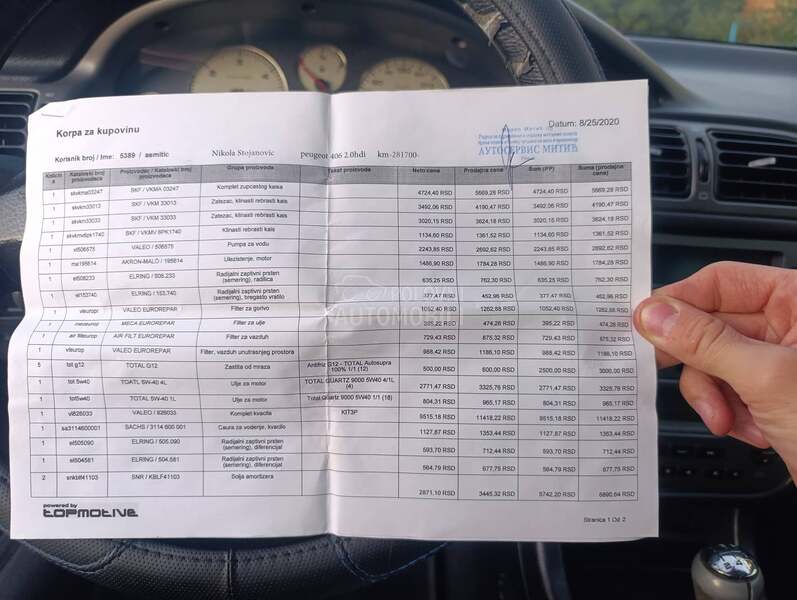 Datum: 8/25/2020
АУТОСЕРВИС МИТИЋ
Korpa za kupovinu
Korisnik broj / Ime: 5389 / semitic Nikola Stojanovic peugeot 406 2.0hdi km-281700
Količina Kataloski broj proizvodaca Proizvodac / Kataloski broj proizvodaca Grupa proizvoda Tekst proizvoda Neto cena Prodajna cena Sum (PP) Suma (prodajna cena)
1 skvkma03247 SKF / VKMA 03247 Komplet zupcastog kaisa 4724,40 RSD 5669,28 RSD 4724,40 RSD 5669,28 RSD
1 skvkm33013 SKF / VKM 33013 Zatezac, klinasti rebrasti kais 3492,06 RSD 4190,47 RSD 3492,06 RSD 4190,47 RSD
1 skvkm33033 SKF / VKM 33033 Zatezac, klinasti rebrasti kais 3020,15 RSD 3624,18 RSD 3020,15 RSD 3624,18 RSD
1 skvkmv6pk1740 SKF / VKMV 6PK1740 Klinasti rebrasti kais 1134,60 RSD 1361,52 RSD 1134,60 RSD 1361,52 RSD
1 vl506575 VALEO / 506575 Pumpa za vodu 2243,85 RSD 2692,62 RSD 2243,85 RSD 2692,62 RSD
1 ma195614 AKRON-MALO / 195614 Ulezistenje, motor 1486,90 RSD 1784,28 RSD 1486,90 RSD 1784,28 RSD
1 el508233 ELRING / 508.233 Radijalni zaptivni prsten (semering), radilica 635,25 RSD 762,30 RSD 635,25 RSD 762,30 RSD
1 el153740 ELRING / 153.740 Radijalni zaptivni prsten (semering), bregasto vratilo 377,47 RSD 452,96 RSD 377,47 RSD 452,96 RSD
1 vleuropr VALEO EUROREPAR Filter za gorivo 1052,40 RSD 1262,88 RSD 1052,40 RSD 1262,88 RSD
1 mecaeurop MECA EUROREPAR Filter za ulje 395,22 RSD 474,26 RSD 395,22 RSD 474,26 RSD
1 air filteurop AIR FIL7 EUROREPAR Filter za vazduh 729,43 RSD 875,32 RSD 729,43 RSD 875,32 RSD
1 vlieurop VALEO EUROREPAR Filter, vazduh unutrasnjeg prostora 988,42 RSD 1186,10 RSD 988,42 RSD 1186,10 RSD
5 tot g12 TOTAL G12 Zastita od mraza Antifriz G12 - TOTAL Autosupra 100% 1/1 (12) 500,00 RSD 600,00 RSD 2500,00 RSD 3000,00 RSD
1 tot 5w40 TOATL 5W-40 4L Ulje za motor TOTAL QUARTZ 9000 5W40 4/1L (4) 2771,47 RSD 3325,76 RSD 2771,47 RSD 3325,76 RSD
1 tot5w40 TOTAL 5W-40 1L Ulje za motor Total Quartz 9000 5W40 1/1 (18) 804,31 RSD 965,17 RSD 804,31 RSD 965,17 RSD
1 vl826033 VALEO / 826033 Komplet kvacila KIT3P 9515,18 RSD 11418,22 RSD 9515,18 RSD 11418,22 RSD
1 sa3114600001 SACHS / 3114 600 001 Caura za vodenje, kvacilo 1127,87 RSD 1353,44 RSD 1127,87 RSD 1353,44 RSD
1 el505090 ELRING / 505.090 Radijalni zaptivni prsten (semering), diferencijal 593,70 RSD 712,44 RSD 593,70 RSD 712,44 RSD
1 el504581 ELRING / 504.581 Radijalni zaptivni prsten (semering), diferencijal 564,79 RSD 677,75 RSD 564,79 RSD 677,75 RSD
2 snkblf41103 SNR / KBLF41103 Solja amortizera 2871,10 RSD 3445,32 RSD 5742,20 RSD 6890,64 RSD
powered by
topmotive
Stranica 1 Od 2